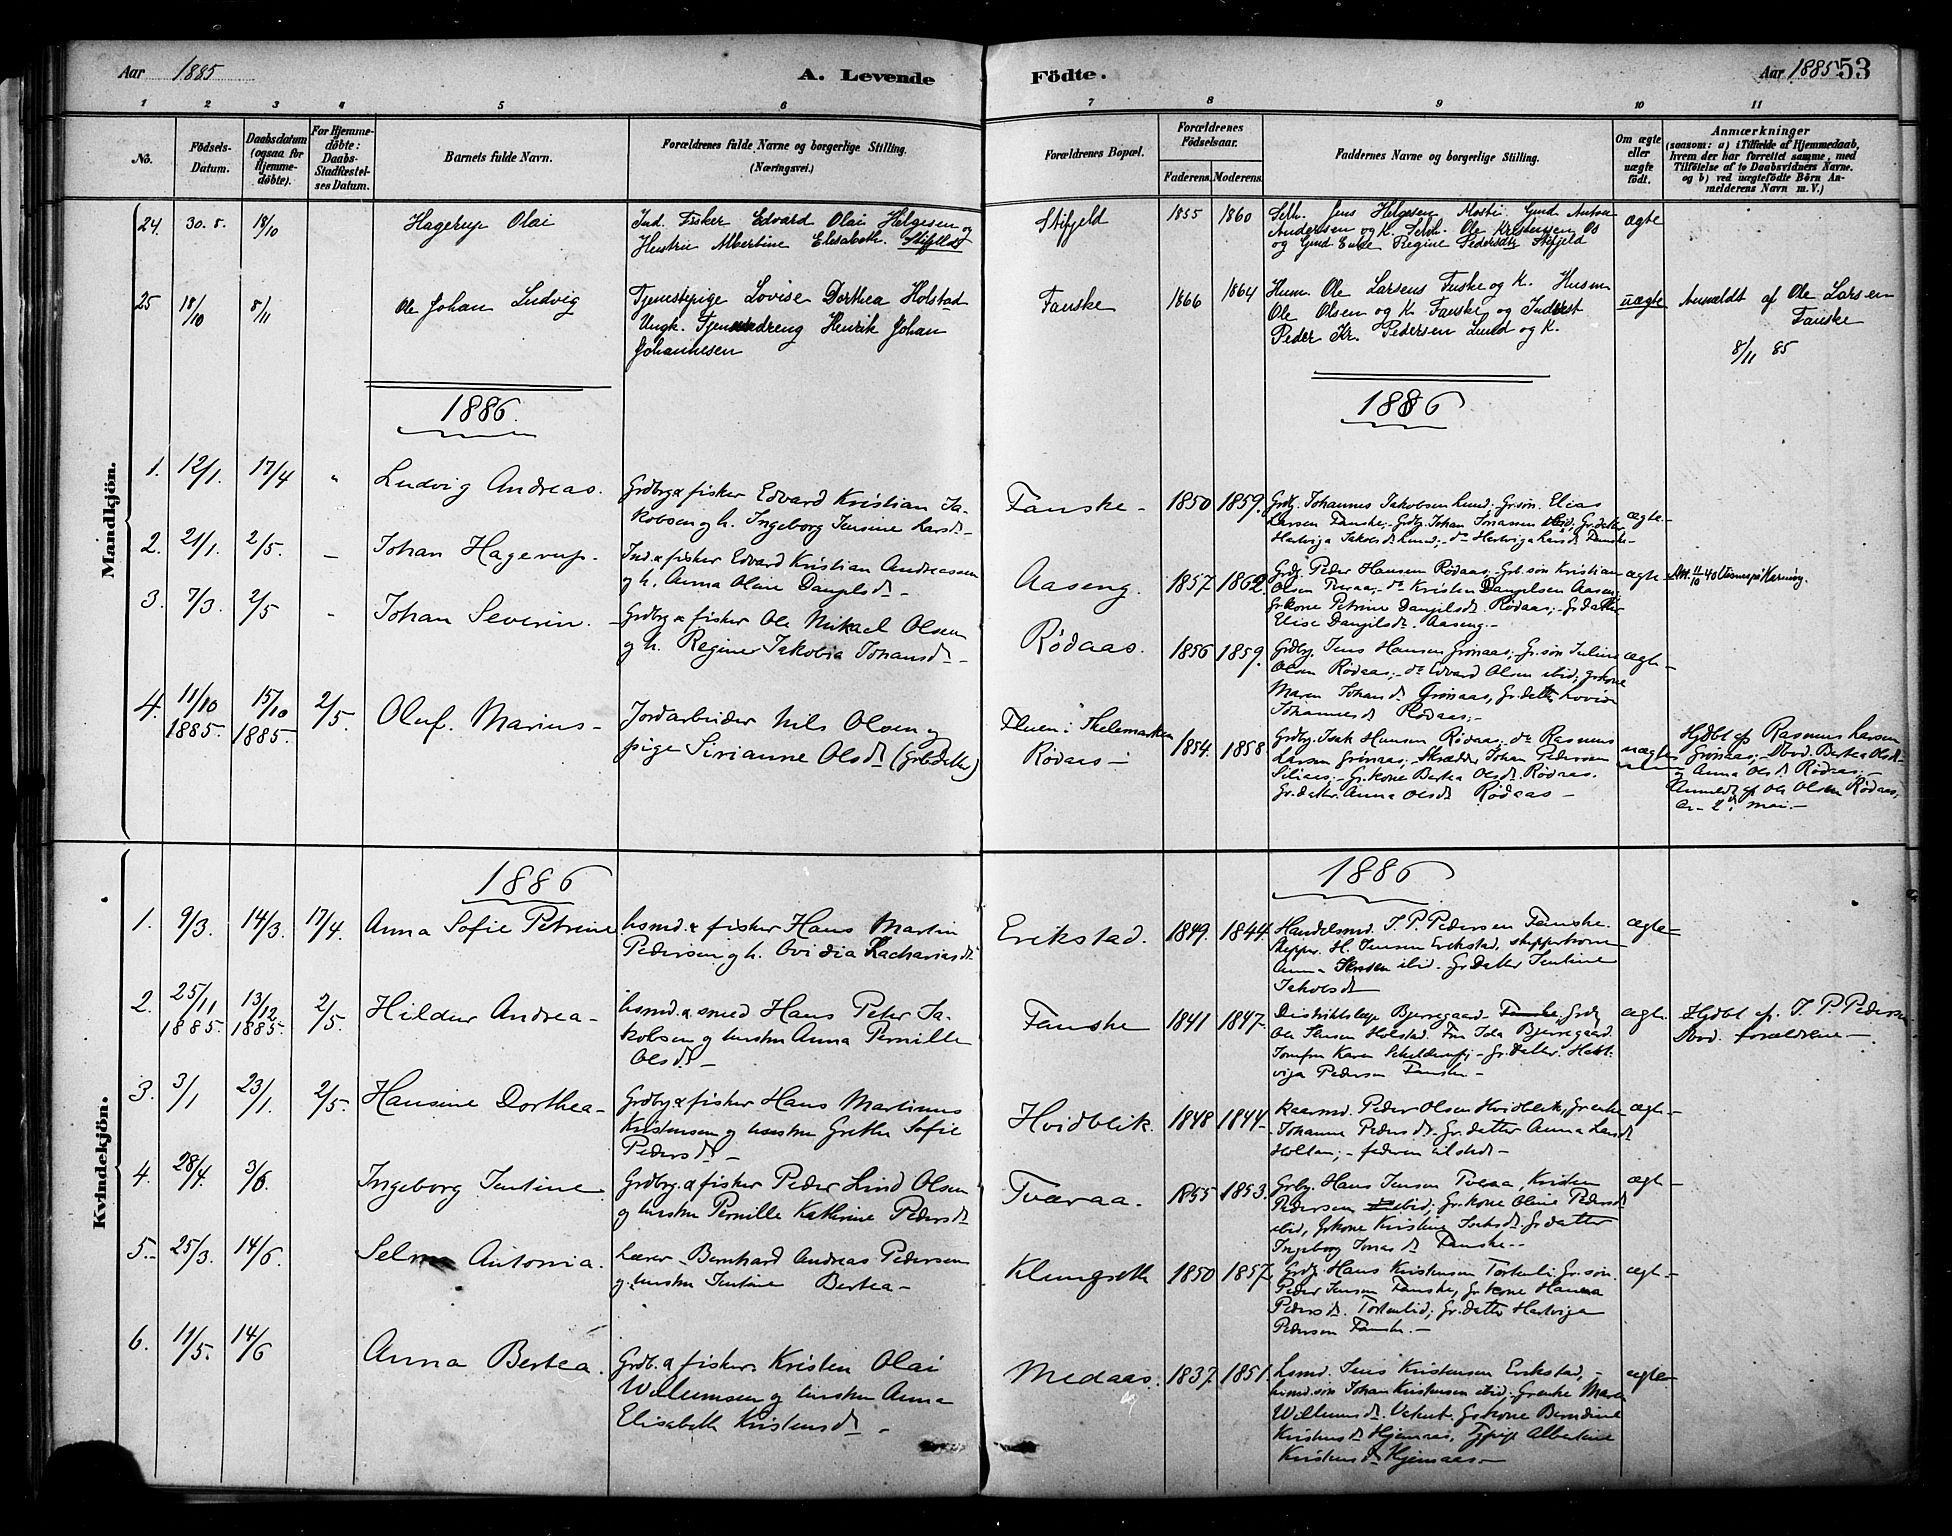 Aar 1885
A. Levende Födte.
Aar 1885 53
1 2 3 4 5 6 7 8 9 10 11
No.
Födsels-Datum.
Daabsdatum (ogsaa for Hjemme-döbte).
For Hjemme-döbte: Daabs-Stadfæstel-ses Datum.
Barnets fulde Navn.
Forældrenes fulde Navne og borgerlige Stilling.
(Næringsvei.)
Forældrenes Bopæl.
Forældrenes Födselsaar.
Faderens. Moderens.
Faddernes Navne og borgerlige Stilling.
Om ægte eller uægte födt.
Anmærkninger
(saasom: a) i Tilfælde af Hjemmedaab, hvem der har forrettet samme, med Tilföielse af to Daabsvidners Navne. og b) ved uægtefödte Börn An-melderens Navn m. V.)
Mandkjön.
24. 30.8. 18/10 Hagerup Olai
Ind. Fisker Edvard Olai Helgesen og
Hustru Albertine Elisabeth
Stifjeld 1855 1860
Selh. Jens Helgesen Mosti Gmd Anton
Andersen og K. Selh. Ole Kristensen Os
og Gmd Enke Regine Pedersdtr Stifjeld
ægte
25 18/10 8/11 Ole Johan Ludvig
Tjenestepige Lovise Dorthea Holstad
Ungk. Tjenestedreng Henrik Johan
Johannesen
Fauske 1866 1864
Husm. Ole Larsens Fuske og K. Husm
Ole Olsen og K. Fauske og Inderst
Peder Kr. Pedersen Lund og K.
uægte
Anmeldt af Ole Larsen
Fauske
8/11 85
1886.
1886
1. 12/1. 17/4 " Ludvig Andreas.
Grdbrg & fisker Edvard Kristian Ja-
kobsen og h. Ingeborg Jensine Larsd. -
Fauske - 1850 1859.
Grdbg. Johannes Jakobsen Lund; Gr.søn Elias
Larsen Fauske;
Hertviga Jakobsd. Lund; - do Hertviga Larsd. Fauske -
ægte -
2. 21/1. 2/5. - Johan Hagerup -
Ind. & fisker Edvard Kristian Andreassen
og h. Anna Oline Danjelsd. -
Aaseng. 1857 1862.
Grdbg. Peder Hansen Rødaas, Grb.søn Kristian
Olsen Tveraa; - do Kristen Danjelsen Aaseng;
Gr.kone Petrine Danjelsd. Rødaas; - Gr.datter
Elise Danjelsd. Aaseng. -
ægte -
3. 7/3. 2/5 - Johan Severin.
Grdbrg & fisker Ole Mikael Olsen
og h. Regine Jakobia Johansd. -
Rødaas. 1856 1859.
Grdbg. Jens Hansen Grønaas; Gr.søn Julius
Olsen Rødaas; - do Edvard Olsen ibid; gr.kone
Maren Johansd. Grønaas, Gr.datter Lovise
Johannesd. Rødaas; -
ægte -
4. 11/10 1885. 15/10 1885. 2/5 Oluf Marius -
Jordarbeider Nils Olsen og
pige Sirianne Olsd. (Grbdatter)
Rødaas - 1854. 1858
Grdbg. Isak Hansen Rødaas; do Rasmus
Larsen Grønaas; - Skrædder Johan Pedersen
Gr.kone Bertea Olsd. Rødaas.
Gr.datter. Anna Olsd. Rødaas -
uægte
Hjdbt af Rasmus Larsen
Grønaas; - Dbvd. Bertea Olsd.
og Anna Olsd. Rødaas; -
Anmeldt af Ole Olsen Rødaas,
Kvindekjön.
1886
1886
1. 9/3. 14/3. 17/4. Anna Sofie Petrine
husmd. & fisker Hans Martin
Pedersen og h. Ovidia Zachariasd.
Erikstad. 1849. 1844.
Handelsmd. J. P. Pedersen Fauske.
Skipper H. Jensen Erikstad, skipperkone
Anna Jensen ibid. Gr.datter Jentine
Jakobsd.
ægte -
2. 25/11 1885 13/12 1885. 2/5. Hildur Andrea -
husmd. & smed Hans Peter Ja-
kobsen og hustru Anna Pernille
Olsd. -
Fauske 1841 1847 -
Distriktslæge Bjerregaard Grdbg.
Ole Jensen Holstad. Fru Ida Bjerregaard
Jomfru Karen
viga Pedersen Fauske -
ægte.
Hjdbt af J. P. Pedersen
Dbvd. forældrene -
3. 3/1 23/1. 2/5. Hansine Dorthea -
Grdbrg & fisker Hans Martinus
Kristensen og hustru Grethe Sofie
Pedersd. -
Hvidblik. 1848 1844 -
Kaarmd. Peder Olsen Hvidblik, Gr.enke
Johanna Pedersd. Gr.datter Anna Larsd.
Holtan; - faderen tilstede -
ægte -
4. 28/4. 3/6. Ingeborg Jentine
Grdbrg. & fisker Peder Lind Olsen
og hustru Pernille Kathrine Pedersd.
Tværaa. 1855 1853.
Grbg. Hans Jensen Tveraa, Kristen
Pedersen ibid; Gr.kone Oline Pedersd.
ibid, Gr.kone Kristine Gr.datter
Ingeborg Jonasd. Fauske -
ægte -
5. 25/3. 14/6. Selma Antonia.
Lærer Bernhard Andreas Pedersen
og hustru Jentine Bertea -
Klungseth 1850 1857.
Grdbg. Hans Kristensen Gr.søn.
Peder Jensen Fauske, Gr.kone Hanna
Pedersd. Gr.datter Hertviga
Pedersen Fauske. -
ægte -
6. 11/5. 14/6 Anna Bertea.
Grdb. & fisker Kristen Olai
Willumsen og hustru Anna
Elisabeth Kristensd. -
Medaas. 1837. 1851.
husmd. Jens Kristensen Erikstad, -
husmd.søn Johan Kristensen ibid; Gr.enke Maren
Willumsd. Gr.kone Berndine
Kristensd. Hjemaas, Tj.pige Albertine
Kristensd. Hjemaas -
ægte -